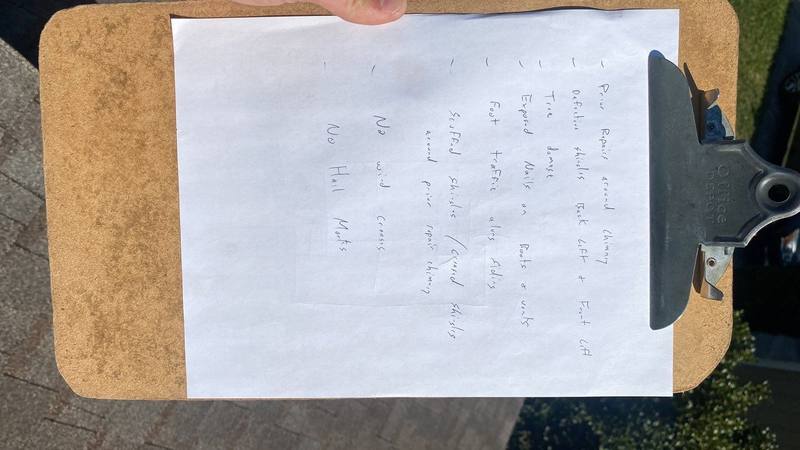 - Prior Repairs around chimny
- Defective shingles Back Left + Front Left
- Tree damage
- Exposed Nails on Boots & vents
- Foot traffic along siding
- Scuffed shingles / shingles
around prior repair chimny
- No wind creases
- No Hail Marks
Office
DEPOT